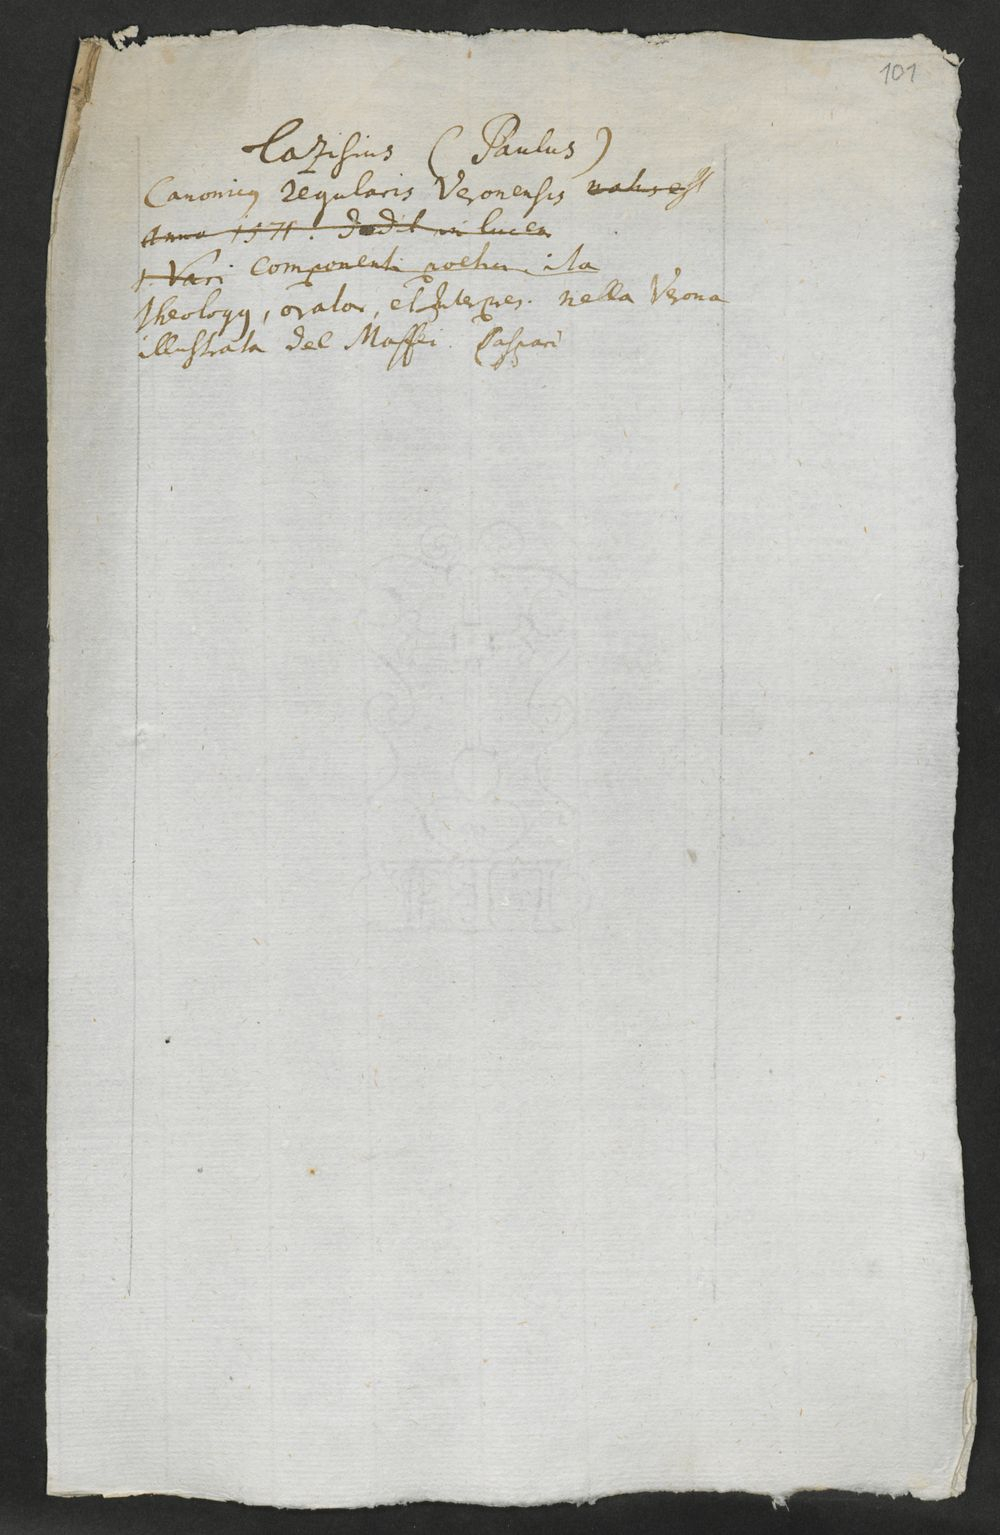 101
Lazisius (Paulus)
Canonicus regularis Veronensis natus est
Anno 1571. dedit in lucem
1. Varj componenti poetici ita
theologus, orator, et Interpres. nella Verona
illustrata del Maffei. Gaspari